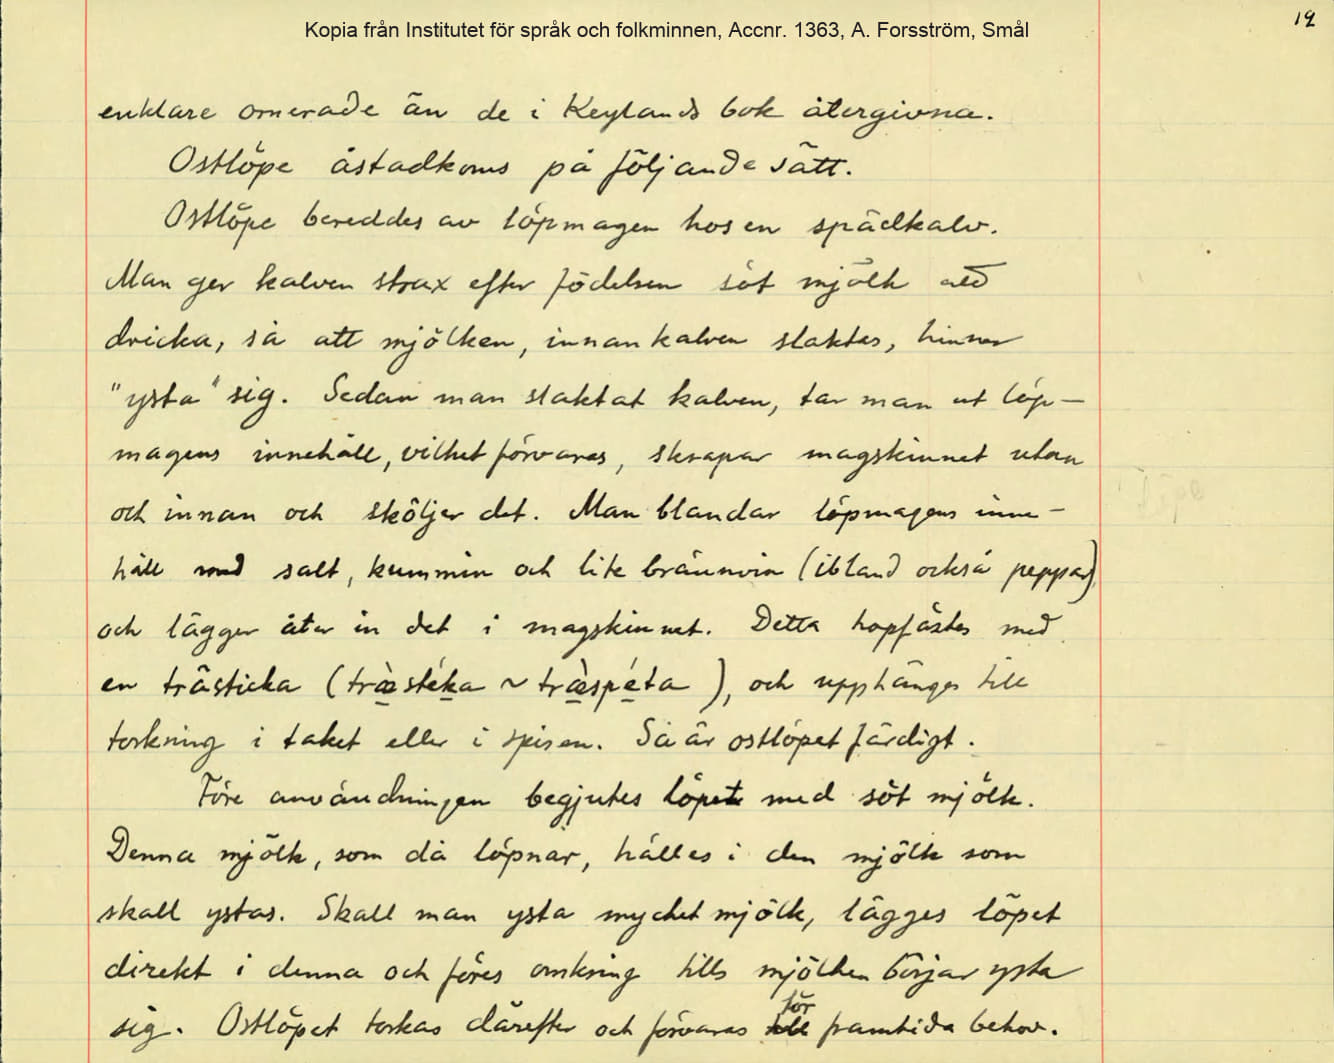 Kopia från Institutet för språk och folkminnen, Accnr. 1363, A. Forsström, Smål
19
enklare ornerade än de i Keylands bok återgivna.
Ostlöpe åstadkoms på följande sätt.
Ostlöpe bereddes av löpmagen hos en spädkalv.
Man ger kalven strax efter födelsen söt mjölk att
dricka, så att mjölken, innan kalven slaktas, hinner
"ysta" sig. Sedan man slaktat kalven, tar man ut löp-
magens innehåll, vilket förvaras, skrapar magskinnet utan
och innan och sköljer det. Man blandar löpmagens inne-
håll med salt, kummin och lite brännvin (ibland också peppar)
och lägger åter in det i magskinnet. Detta hopfästes med
en trästicka (træ̀stéka ~ træ̀spéta), och upphänges till
torkning i taket eller i spisen. Så är ostlöpet färdigt.
Före användningen begjutes löpet med söt mjölk.
Denna mjölk, som då löpnar, hälles i den mjölk som
skall ystas. Skall man ysta mycket mjölk, lägges löpet
direkt i denna och föres omkring tills mjölken börjar ysta
sig. Ostlöpet torkas därefter och förvaras för framtida behov.